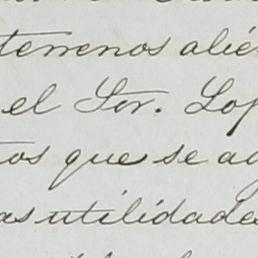 terrenos alie
el Sor. Lop
tos que se ag
as utilidades